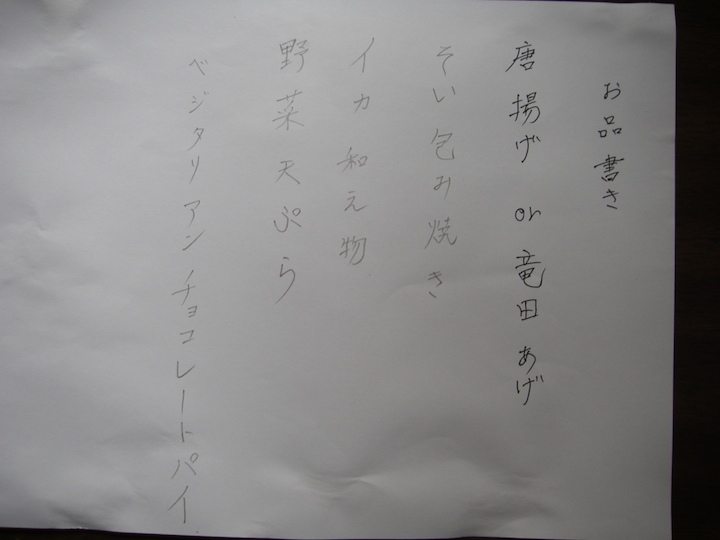 お品書き
唐揚げ or 竜田あげ
そい包み焼き
イカ和え物
野菜天ぷら
ベジタリアンチョコレートパイ